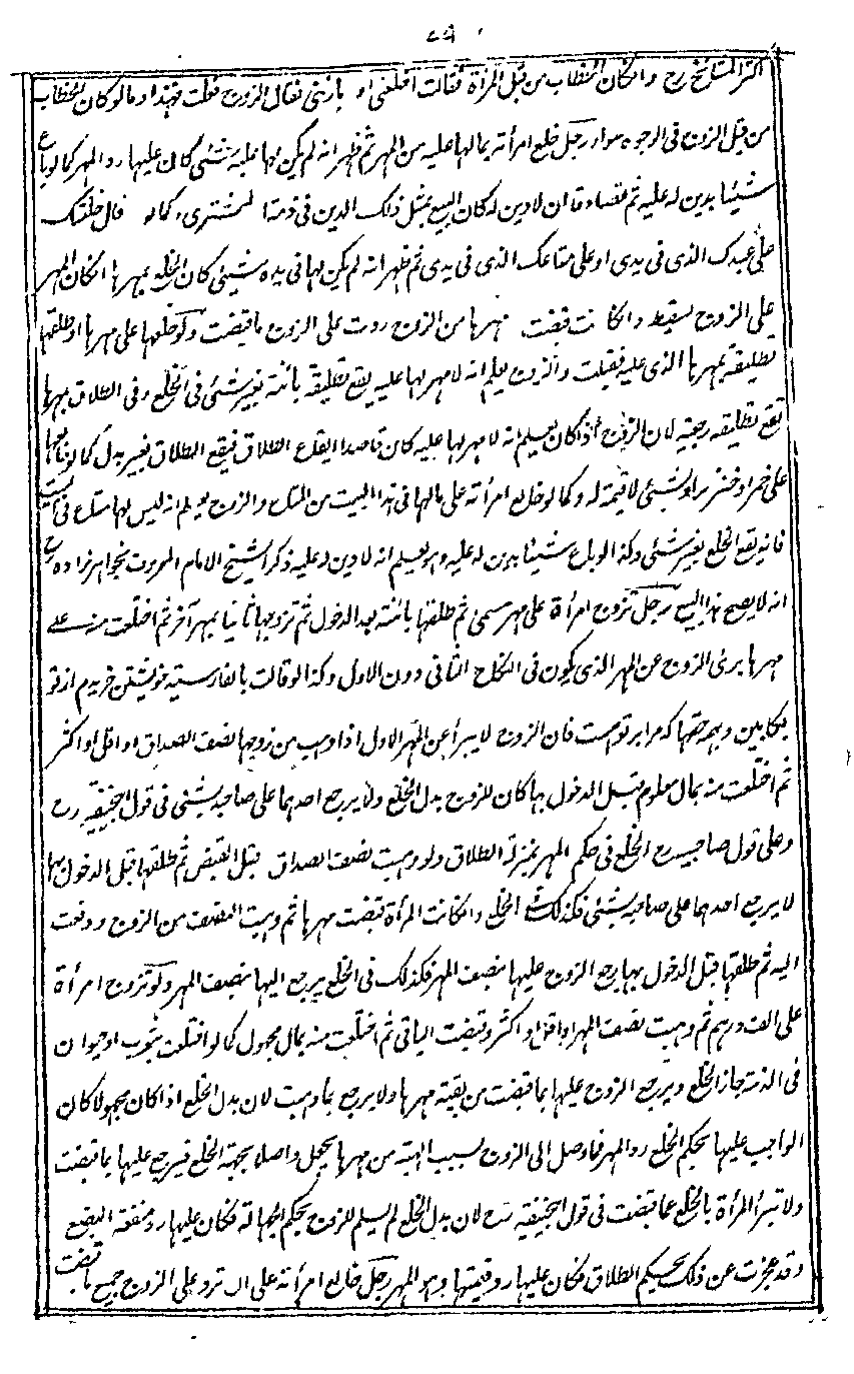 اكثر المشائخ رح وانكان الخطاب من قبل المرأة فقالت اخلعنى او بارئنى فقال الزوج فعلت فهذا وما لو كان الخطاب
من قبل الزوج فى الوجوه سواء رجل خلع امرأته بمالها عليه من المهر ثم ظهر انه لم يكن لها عليه شئ كان عليها رد المهر كما لو باع
شيئا بدين له عليه ثم تصادقا ان لا دين له كان البيع بمثل ذلك الدين فى ذمة المشترى وكما لو قال خلعتك
على عبدك الذى فى يدى او على متاعك الذى فى يدى ثم ظهر انه لم يكن لها فى يده شئ كان الخلع بمهرها انكان المهر
على الزوج سقط وانكانت قبضت مهرها من الزوج ردت على الزوج ما قبضت ولو خلعها على مهرها او طلقها
تطليقة بمهرها الذى عليه فقبلت والزوج يعلم انه لا مهر لها عليه يقع تطليقة بائنة بغير شئ فى الخلع وفى الطلاق بمهرها
تقع تطليقة رجعية لان الزوج اذا كان يعلم انه لا مهر لها عليه كان قاصدا ايقاع الطلاق فيقع الطلاق بغير بدل كما لو خالعها
على خمر او خنزير او بشئ لا قيمة له وكما لو خالع امرأته على مالها فى هذا البيت من المتاع والزوج يعلم انه ليس لها متاع فى البيت
فانه يقع الخلع بغير شئ وكذا لو باع شيئا بدين له عليه وهو يعلم انه لا دين له عليه ذكر الشيخ الامام المعروف بخواهر زاده رح
انه لا يصح هذا البيع رجل تزوج امرأة على مهر مسمى ثم طلقها بائنة بعد الدخول ثم تزوجها ثانيا بمهر آخر ثم اختلعت منه على
مهرها برئ الزوج عن المهر الذى يكون فى النكاح الثانى دون الاول وكذا لو قالت بالفارسية خويشتن خريدم از تو
بكابين وبهمه حقها كه مرا بر تو هست فان الزوج لا يبرأ عن المهر الاول اذا وهبت من زوجها نصف الصداق او اقل او اكثر
ثم اختلعت منه بمال معلوم قبل الدخول بها كان للزوج بدل الخلع ولا يرجع احدهما على صاحبه بشئ فى قول ابيحنيفة رح
وعلى قول صاحبيه رح الخلع فى حكم المهر بمنزلة الطلاق ولو وهبت نصف الصداق قبل القبض ثم طلقها قبل الدخول بها
لا يرجع احدهما على صاحبه بشئ فكذلك فى الخلع وانكانت المرأة قبضت مهرها ثم وهبت النصف من الزوج ودفعت
اليه ثم طلقها قبل الدخول بها يرجع الزوج عليها بنصف المهر فكذلك فى الخلع يرجع اليها بنصف المهر ولو تزوج امرأة
على الف درهم ثم وهبت نصف المهر او اقل او اكثر وقبضت الباقى ثم اختلعت منه بمال مجهول كما لو اختلعت بثوب او حيوان
فى الذمة جاز الخلع ويرجع الزوج عليها بما قبضت من بقية مهرها ولا يرجع بما وهبت لان بدل الخلع اذا كان مجهولا كان
الواجب عليها بحكم الخلع رد المهر فما وصل الى الزوج بسبب الهبة من مهرها يجعل واصلا بجهة الخلع فيرجع عليها بما قبضت
ولا تبرأ المرأة بالخلع عما قبضت فى قول ابيحنيفة رح لان بدل الخلع لم يسلم للزوج بحكم الجهالة فكان عليها رد منفعة البضع
وقد عجزت عن ذلك بحكم الطلاق فكان عليها رد قيمتها وهو المهر رجل خالع امرأته على ان ترد على الزوج جميع ما قبضت